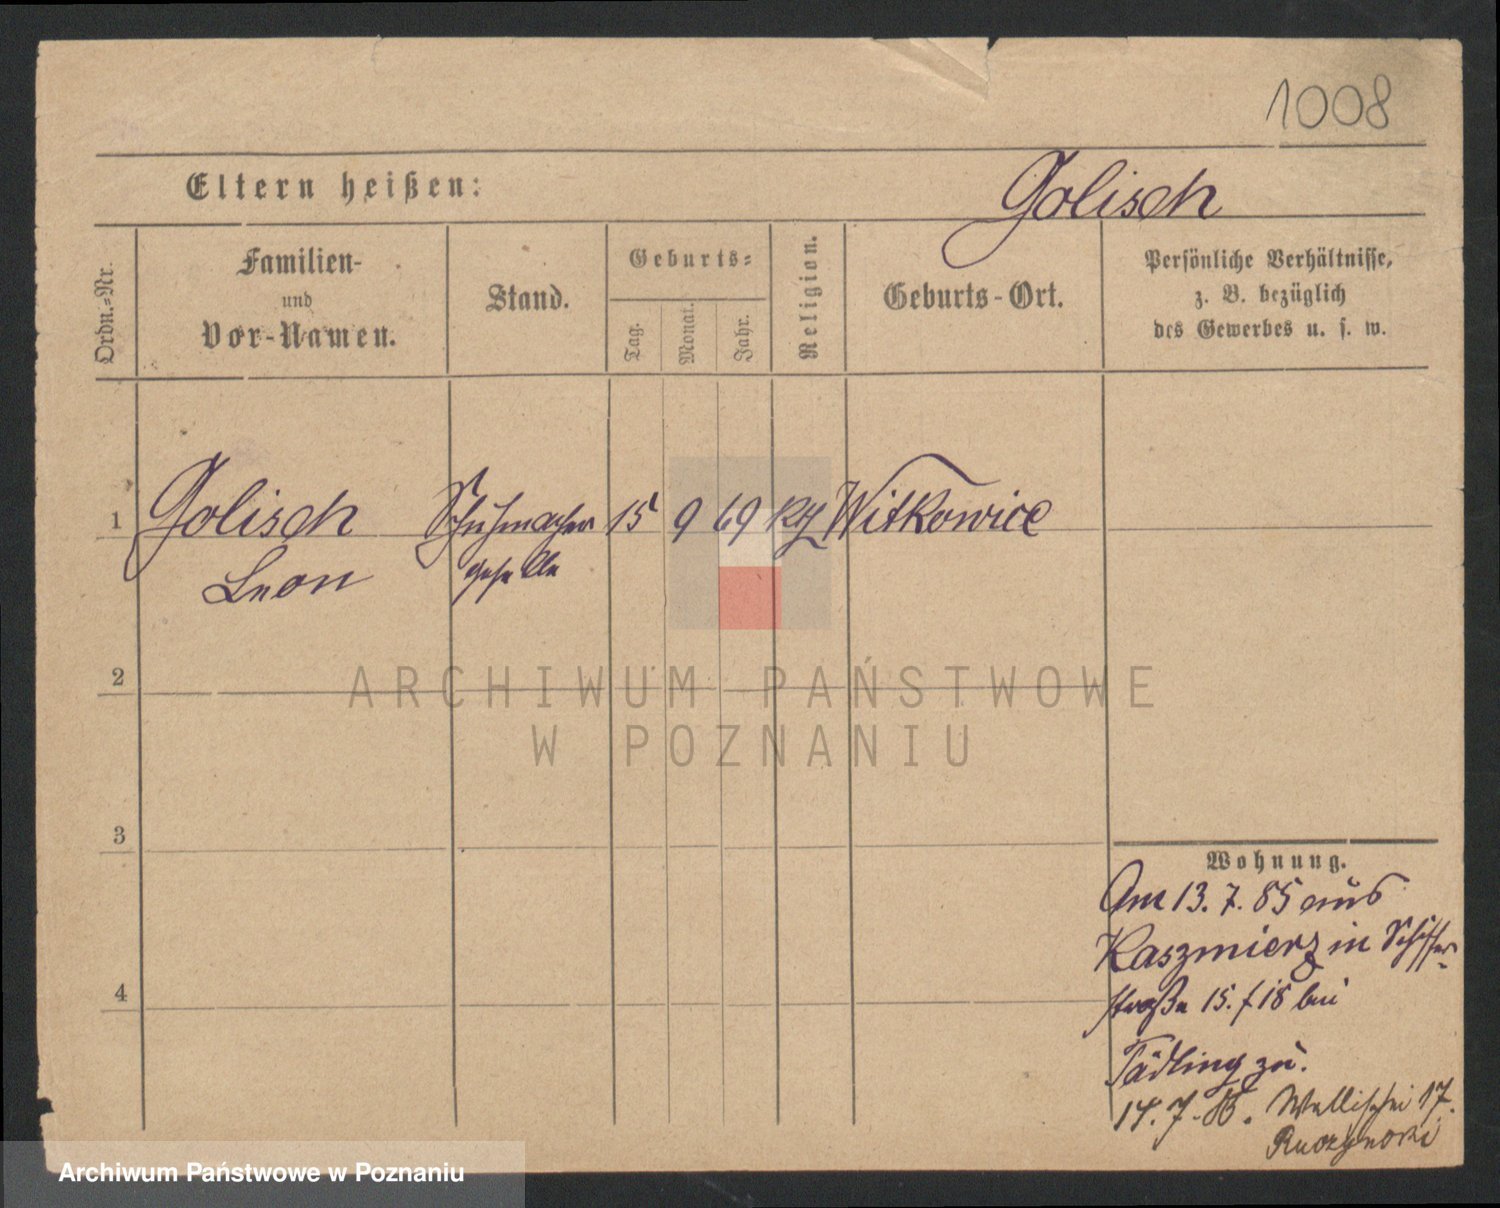 1008
Eltern heißen:
Golisch
Ordn.-Nr.
Familien-
und
Vor-Namen.
Stand.
Geburts-
Tag.
Monat.
Jahr.
Religion.
Geburts-Ort.
Persönliche Verhältnisse,
z. B. bezüglich
des Gewerbes u. s. w.
1
Golisch Schuhmacher 15 9 69 Witkowice
Leon geselle
2
ARCHIWUM PAŃSTWOWE
W POZNANIU
3
Wohnung.
Am 13. 7. 85 aus
Kaszmierz in Schiffer-
4
straße 15. / 18 bei
Tädling zu.
14. 7. Wallischei 17.
Archiwum Państwowe w Poznaniu